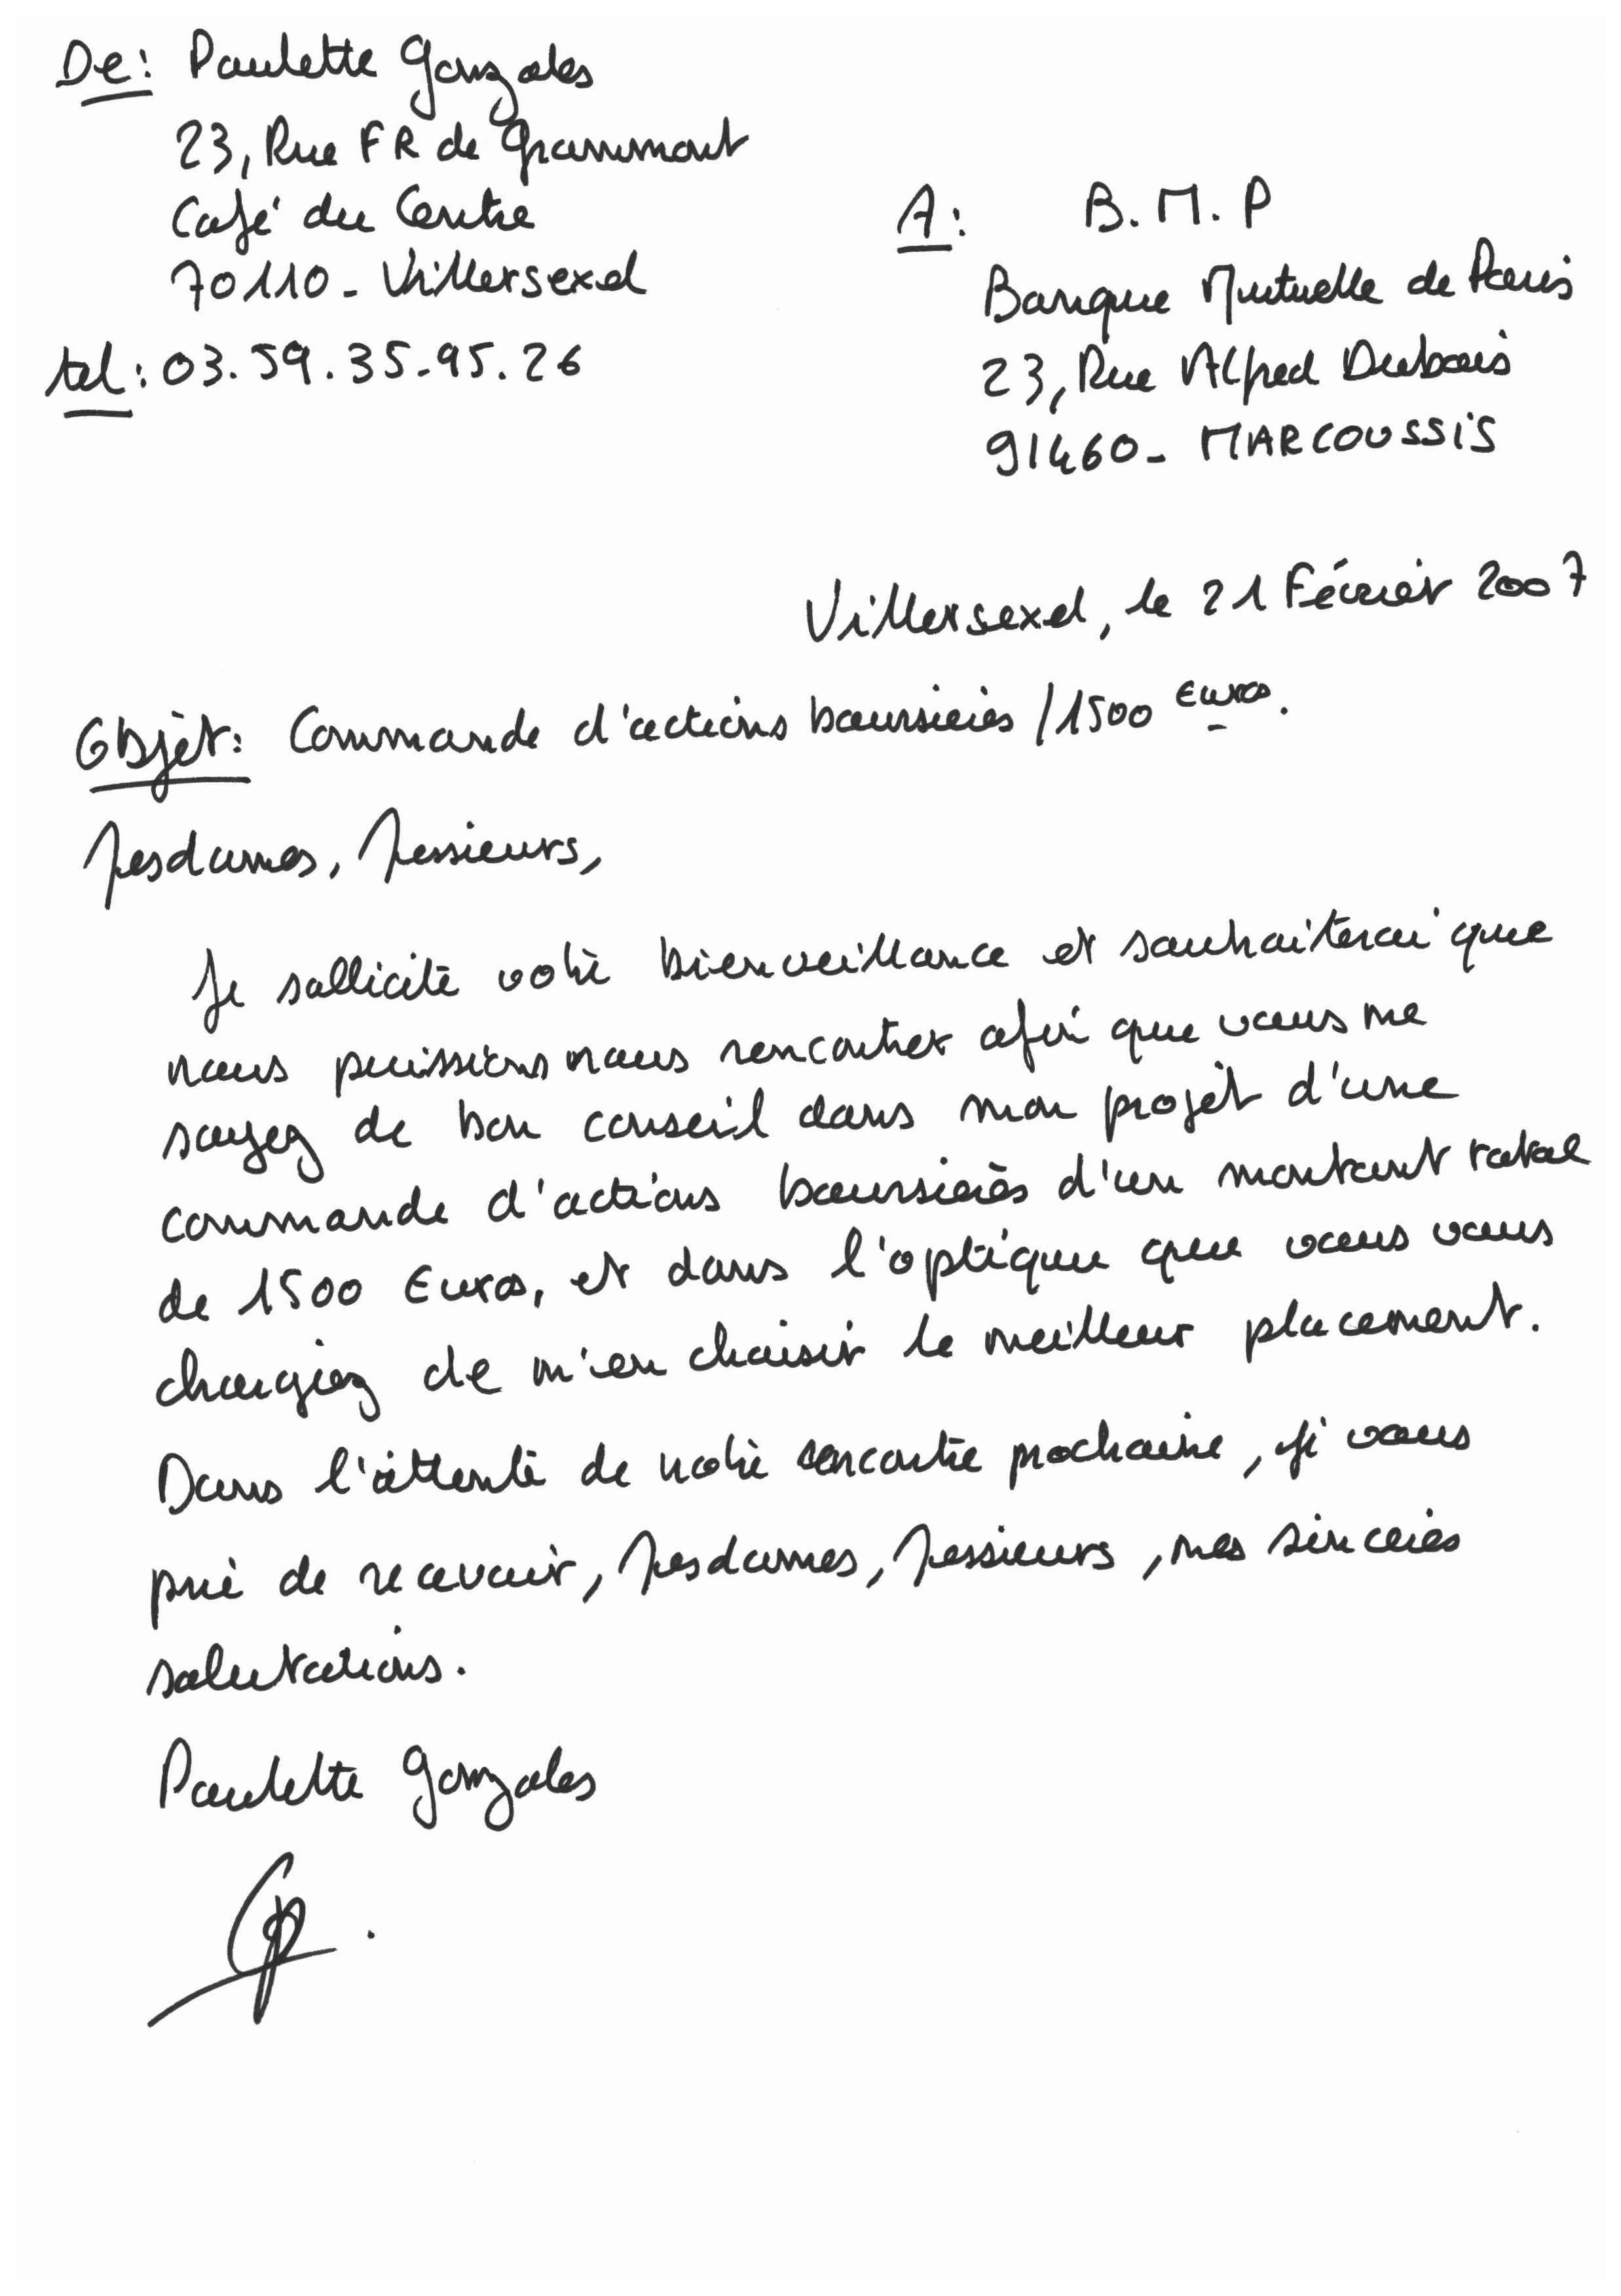 De: Paulette Gonzales
23, Rue FR de Grammont
Café du Centre
70110 - Villersexel
tel: 03.59.35.95.26
A: B.M.P
Banque Mutuelle de Paris
23, Rue Alfred Dubois
91460 - MARCOUSSIS
Villersexel, le 21 Février 2007
Objèt: Commande d'actions boursières / 1500 Euros.
Mesdames, Messieurs,
Je sollicite votre bienveillance et souhaiterai que
nous puissions nous rencontrer afin que vous me
soyez de bon conseil dans mon projèt d'une
commande d'actions boursières d'un montant total
de 1500 Euros, et dans l'optique que vous vous
chargiez de m'en choisir le meilleur placement.
Dans l'attente de notre rencontre prochaine, je vous
prie de recevoir, Mesdames, Messieurs, mes sincères
salutations.
Paulette Gonzales